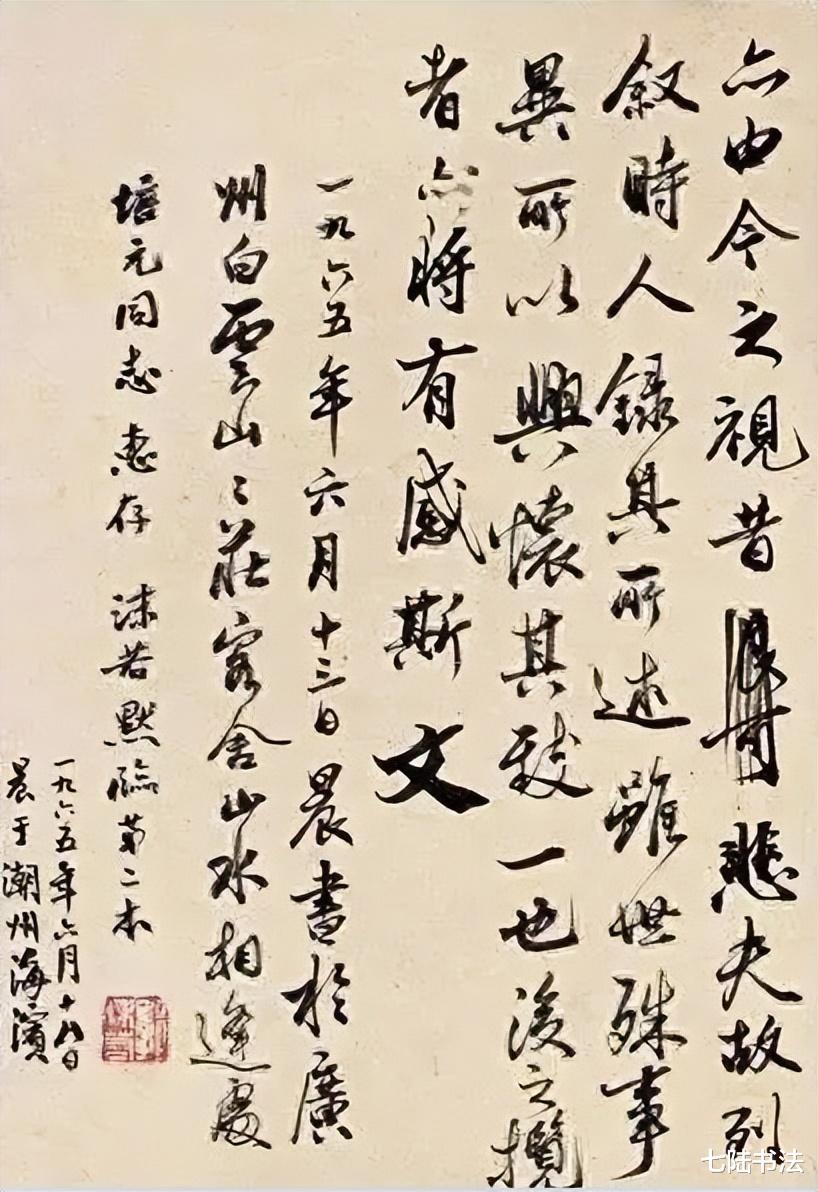 亦由今之視昔悲夫故列
敘時人錄其所述雖世殊事
異所以興懷其致一也後之攬
者亦將有感斯文
一九六五年六月十三日晨書於廣
州白雲山々莊客舍山水相逢處
培元同志惠存 沫若默臨第二本
一九六五年六月十八日
晨于潮州海濱
七陆书法